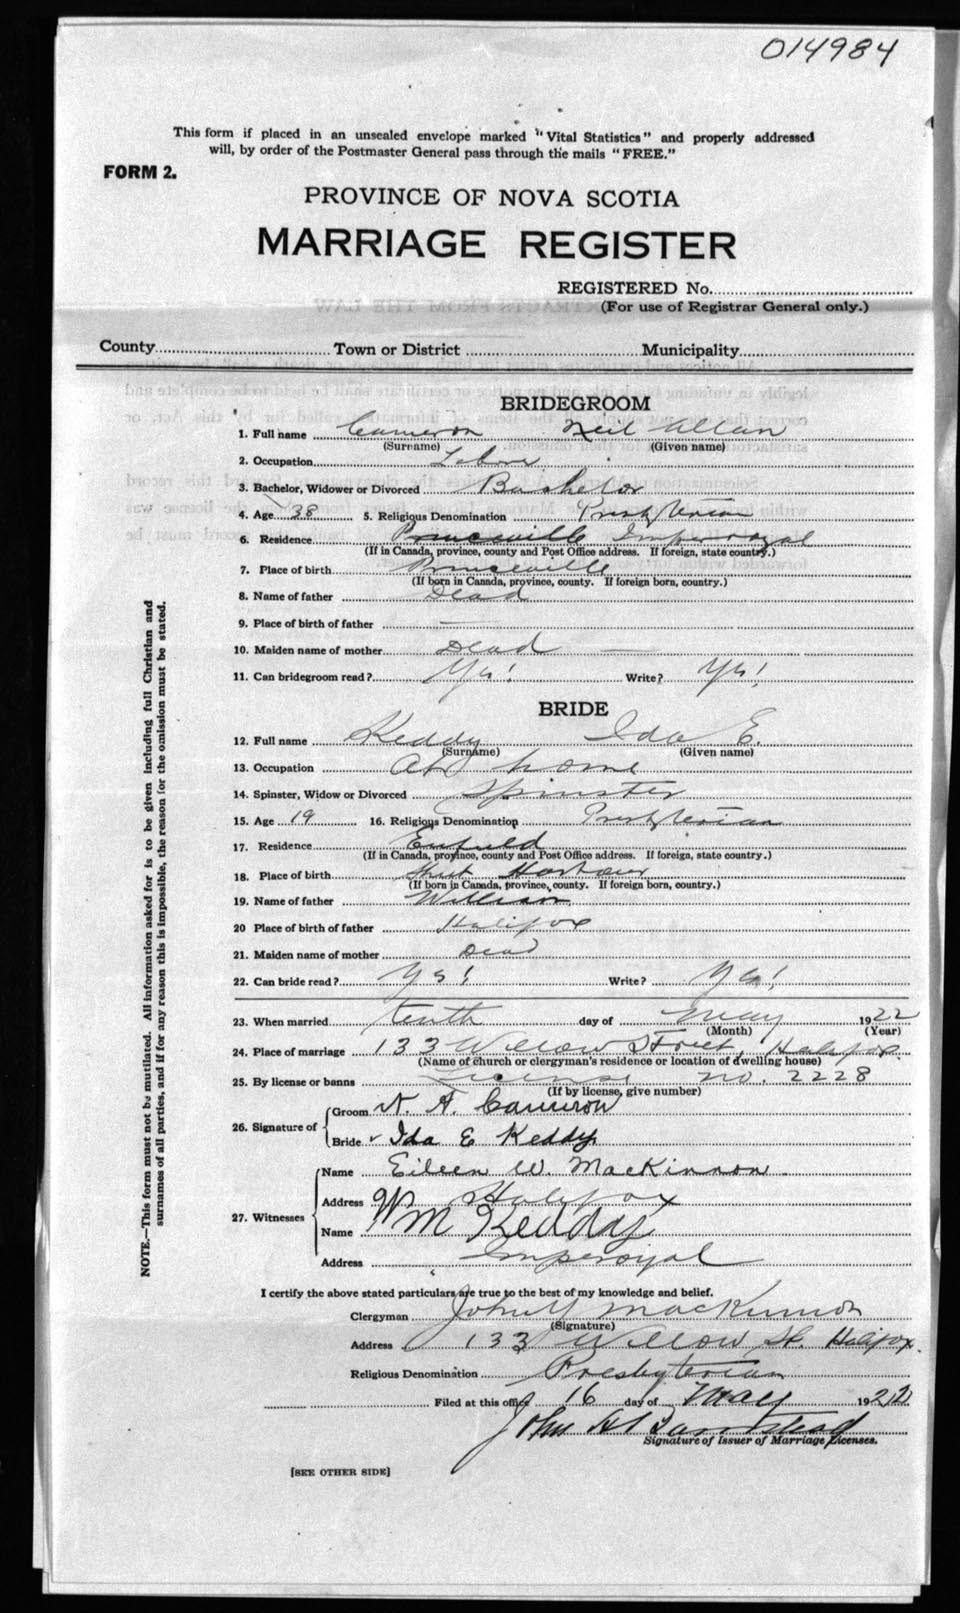 014984
This form if placed in an unsealed envelope marked "Vital Statistics" and properly addressed
will, by order of the Postmaster General pass through the mails "FREE."
FORM 2.
PROVINCE OF NOVA SCOTIA
MARRIAGE REGISTER
REGISTERED No.
(For use of Registrar General only.)
County Town or District Municipality
BRIDEGROOM
1. Full name Cameron Neil Allan
(Surname) (Given name)
2. Occupation
3. Bachelor, Widower or Divorced Bachelor
4. Age 38 5. Religious Denomination Presbyterian
6. Residence Princeville Imperoyal
(If in Canada, province, county and Post Office address. If foreign, state country.)
7. Place of birth Princeville
(If born in Canada, province, county. If foreign born, country.)
8. Name of father Dead
9. Place of birth of father —
10. Maiden name of mother Dead —
11. Can bridegroom read? Yes! Write? Yes!
BRIDE
12. Full name Keddy Ida E.
(Surname) (Given name)
13. Occupation At home
14. Spinster, Widow or Divorced Spinster
15. Age 19 16. Religious Denomination Presbyterian
17. Residence Enfield
(If in Canada, province, county and Post Office address. If foreign, state country.)
18. Place of birth Harbour
(If born in Canada, province, county. If foreign born, country.)
19. Name of father William
20 Place of birth of father Halifax
21. Maiden name of mother Dead
22. Can bride read? Yes! Write? Yes!
23. When married tenth day of May 1922
(Month) (Year)
24. Place of marriage 133 Willow Street, Halifax.
(Name of church or clergyman's residence or location of dwelling house)
25. By license or banns License no. 2228
(If by license, give number)
26. Signature of Groom N. A. Cameron
Bride Ida E Keddy
27. Witnesses Name Eileen W. MacKinnon.
Address Halifax
Name Wm Keddy
Address Imperoyal
I certify the above stated particulars are true to the best of my knowledge and belief.
Clergyman John MacKinnon
(Signature)
Address 133 Willow St. Halifax.
Religious Denomination Presbyterian
Filed at this office 16 day of May 1922
John H Barnstead
Signature of Issuer of Marriage Licenses.
[SEE OTHER SIDE]
NOTE.—This form must not be mutilated. All information asked for is to be given including full Christian and
surnames of all parties, and if for any reason this is impossible, the reason for the omission must be stated.